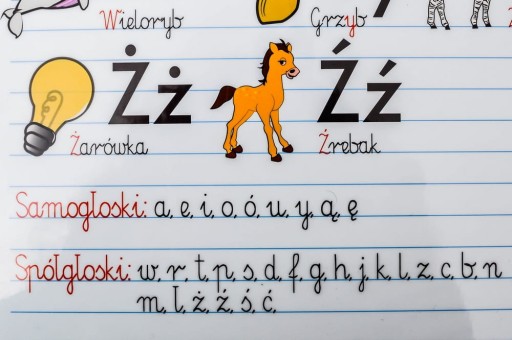 Wieloryb Grzyb
Żż Źź
Żarówka Źrebak
Samogłoski: a, e, i, o, ó, u, y, ą, ę
Spółgłoski: w, r, t, p, s, d, f, g, h, j, k, l, z, c, b, n
m, l, ż, ź, ś, ć,